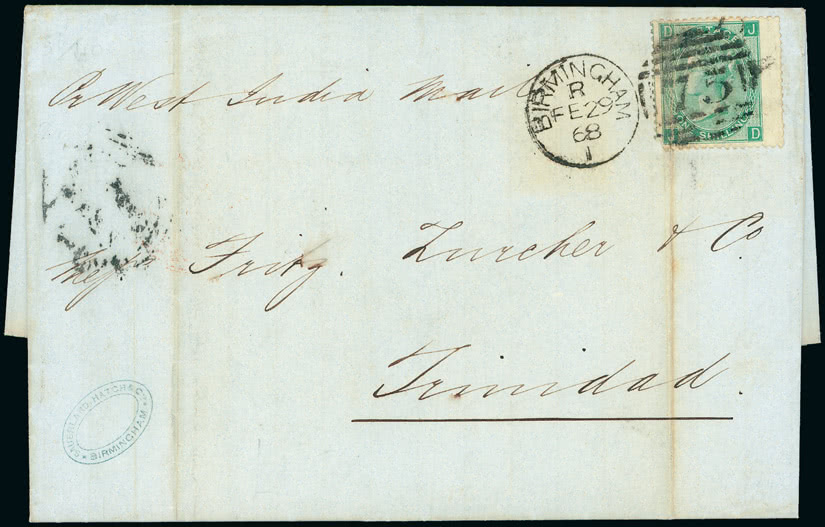 Pr West India Mail
BIRMINGHAM
R
FE 29
68
1
D J
POSTAGE
75
ONE SHILLING
J D
Messrs Fritz. Zurcher & Co
Trinidad.
HATCH & Co
BIRMINGHAM